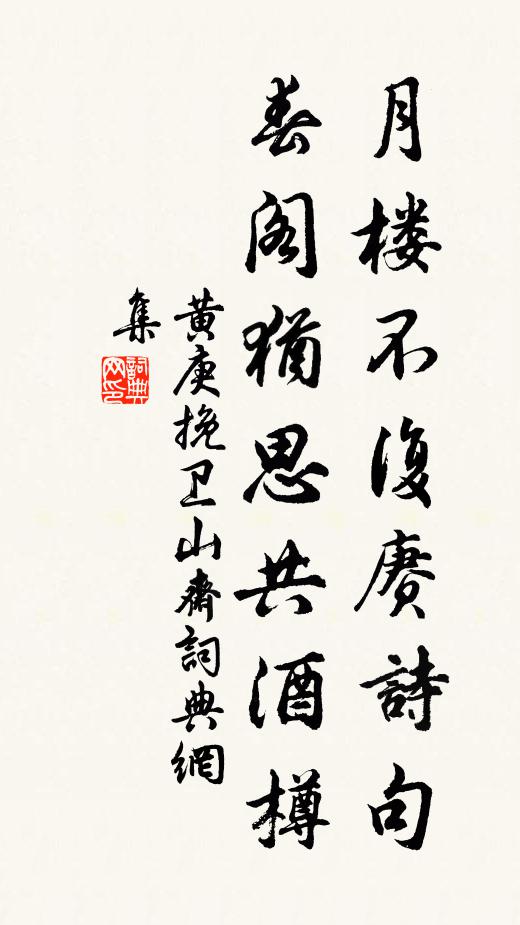 月楼不復赓詩句
春阁猶思共酒樽
黄庚挽卫山齋詞典網
集
詞典
网印